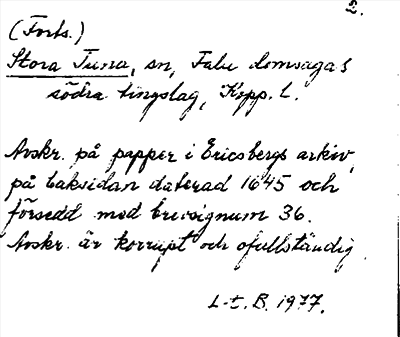 2.
(Forts.)
Stora Tuna, sn, Falu domsagas
södra tingslag, Kopp. L.
Avskr. på papper i Ericsbergs arkiv,
på baksidan daterad 1645 och
försedd med brevsignum 36.
Avskr. är korrupt och ofullständig.
L-t. B. 1977.